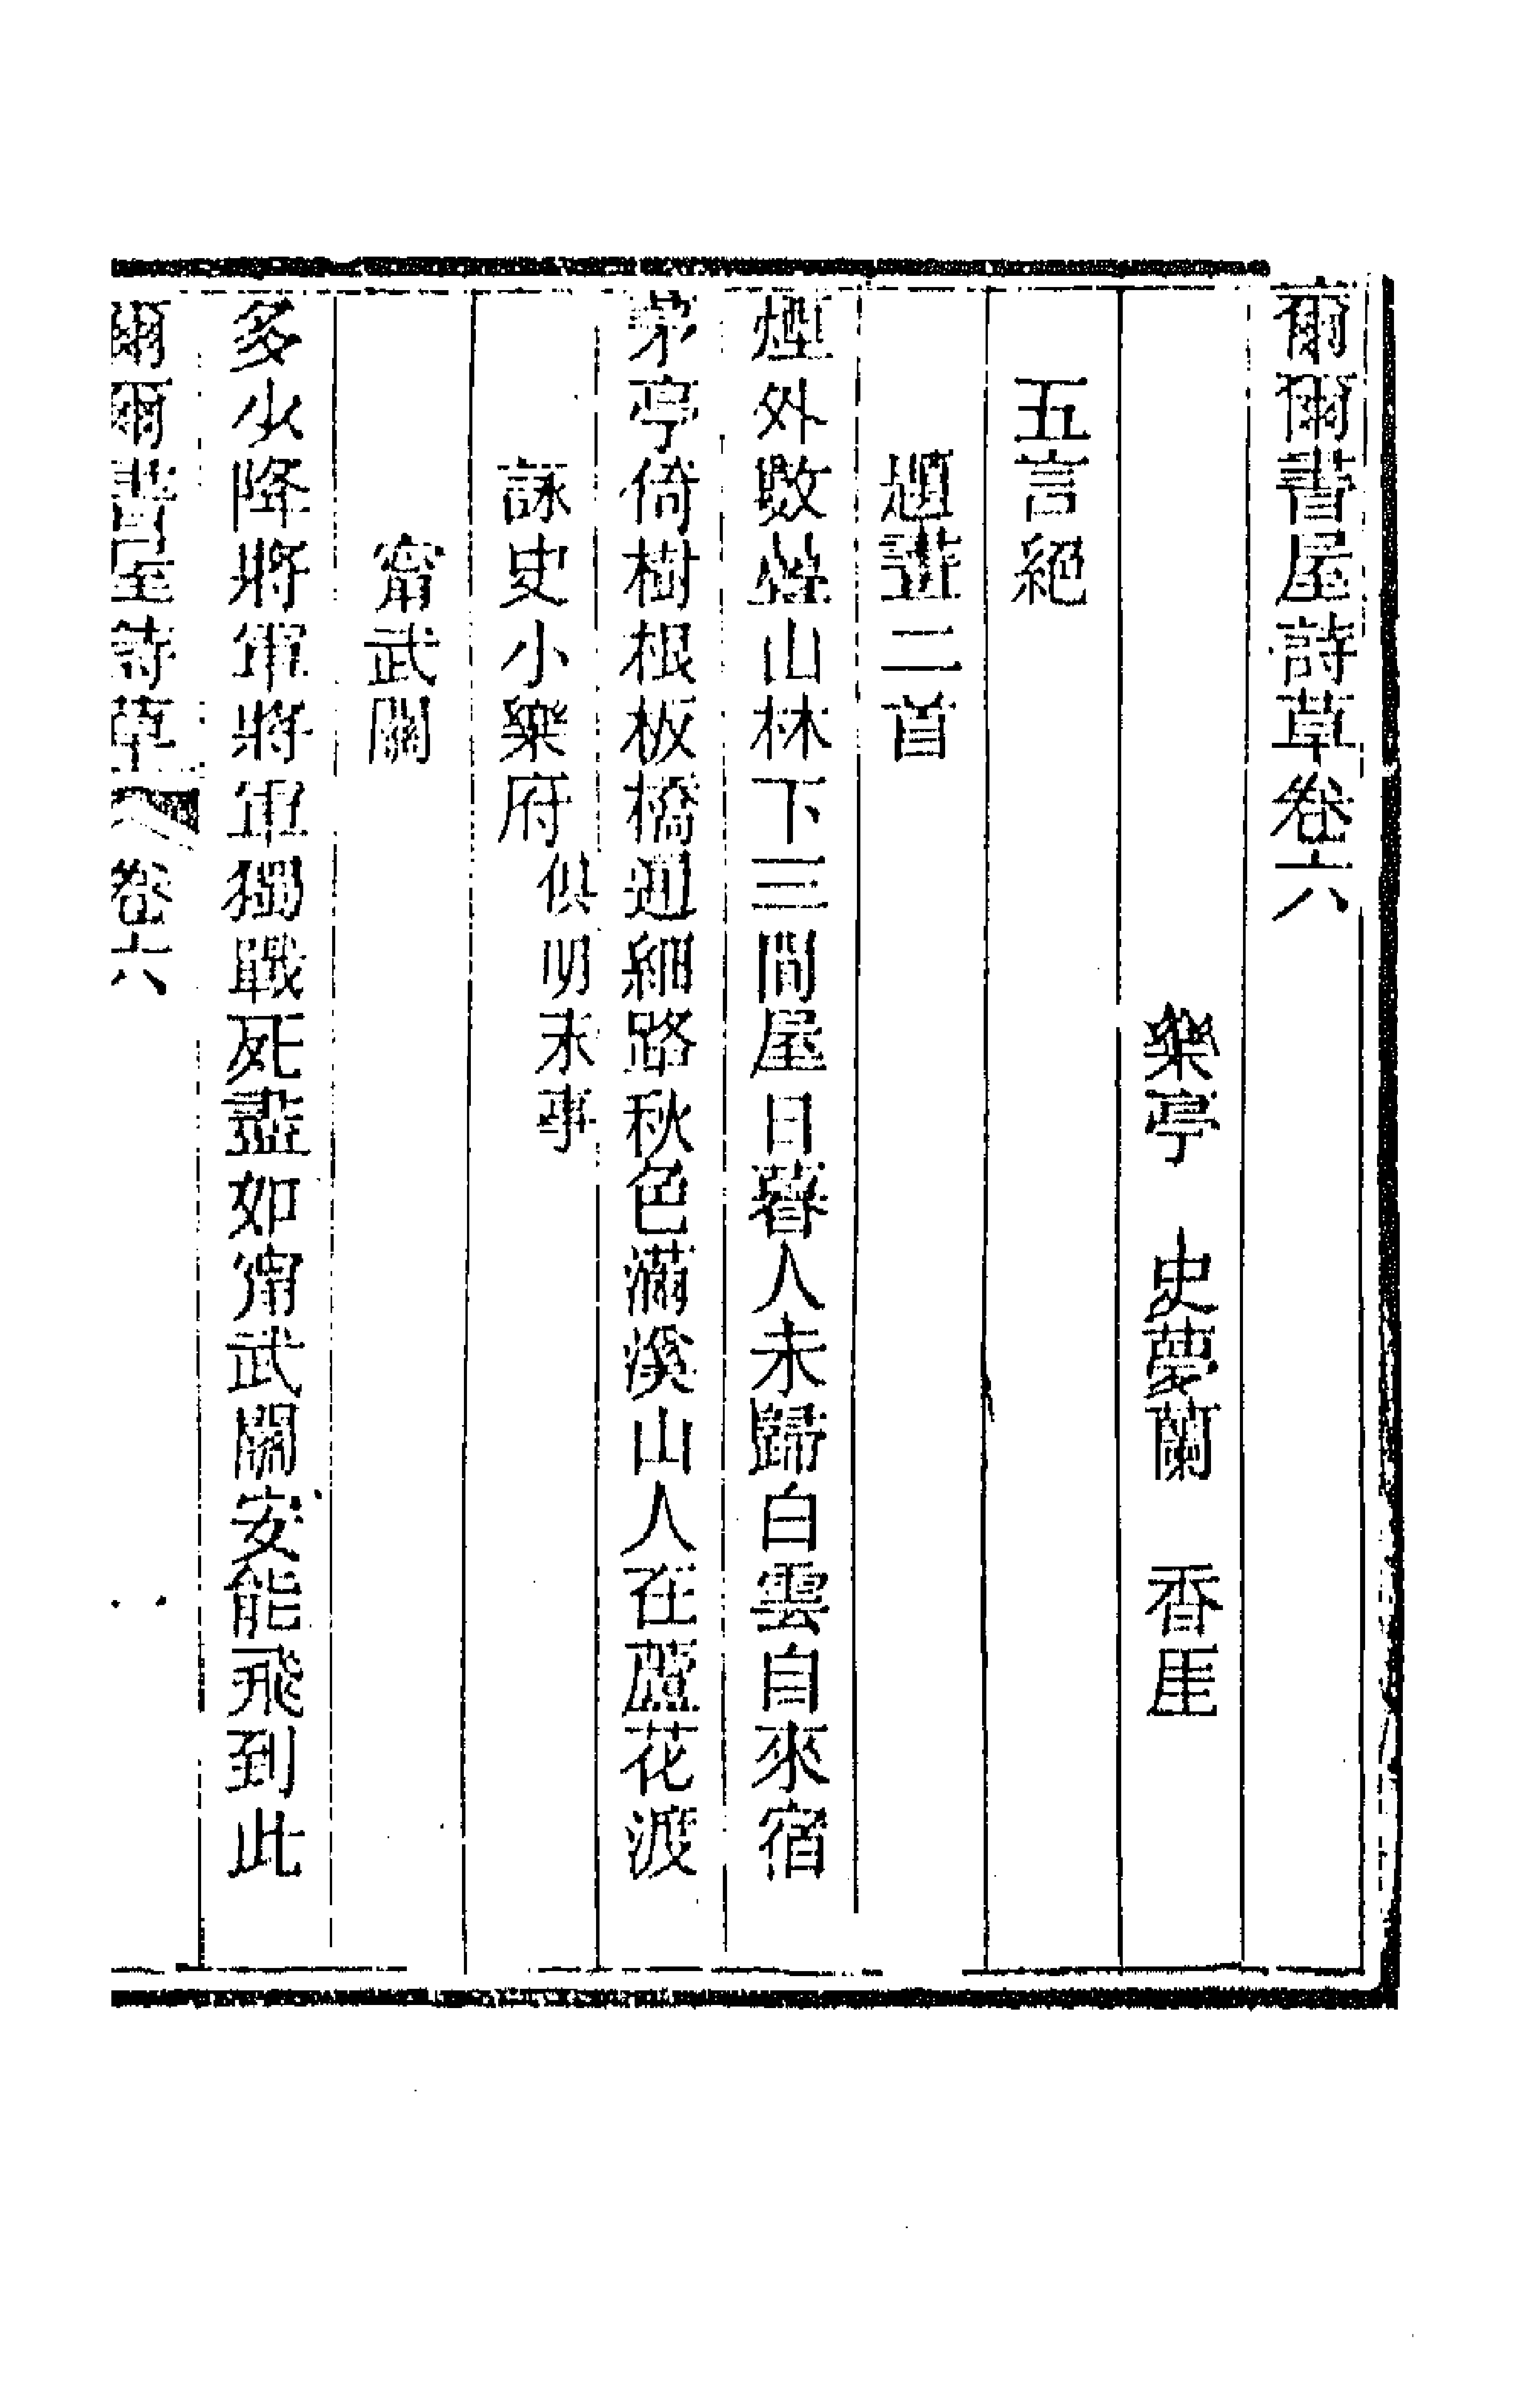 爾爾書屋詩草卷六
樂亭　史夢蘭　香厓
五言絕
題畫二首
煙外數叢山林下三間屋日暮人未歸白雲自來宿
茅亭倚樹根板橋通細路秋色滿溪山人在蘆花渡
詠史小樂府俱明末事
甯武關
多少降將軍將軍獨戰死盡如甯武關安能飛到此
爾爾書屋詩草　卷六